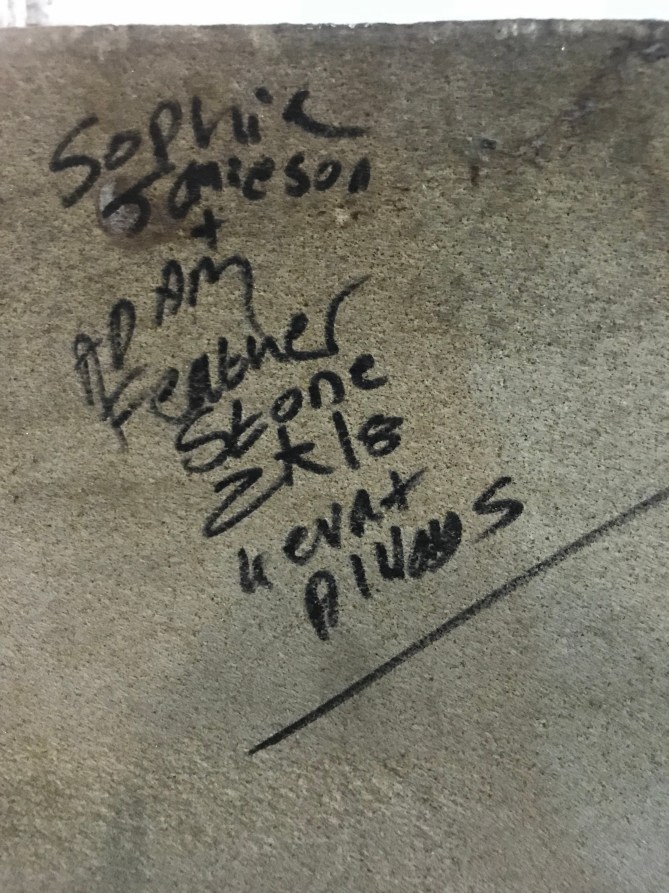 Sophie
Jamieson
+
ADAM
Feather
Stone
2k18
4eva+
Always